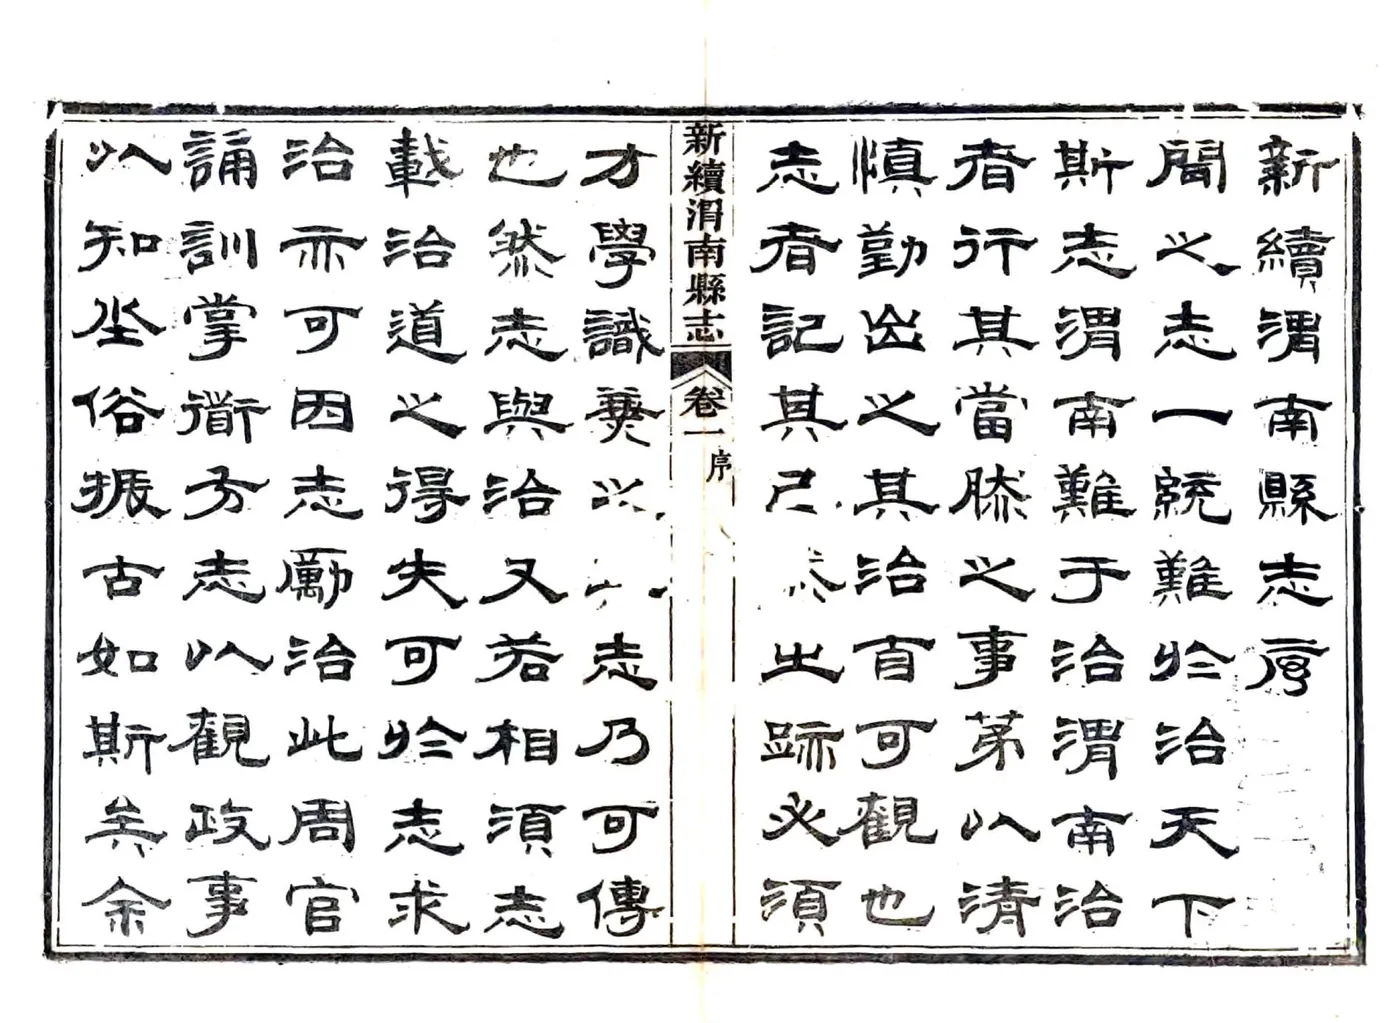 新續渭南縣志序
聞之志一統難於治天下
斯志渭南難于治渭南治
者行其當然之事苐以清
慎勤出之其治自可觀也
志者記其已然之跡必須
新續渭南縣志 卷一 序
才學識兼之志乃可傳
也然志與治又若相須志
載治道之得失可於志求
治亦可因志勵治此周官
誦訓掌衟方志以觀政事
以知坐俗振古如斯矣余